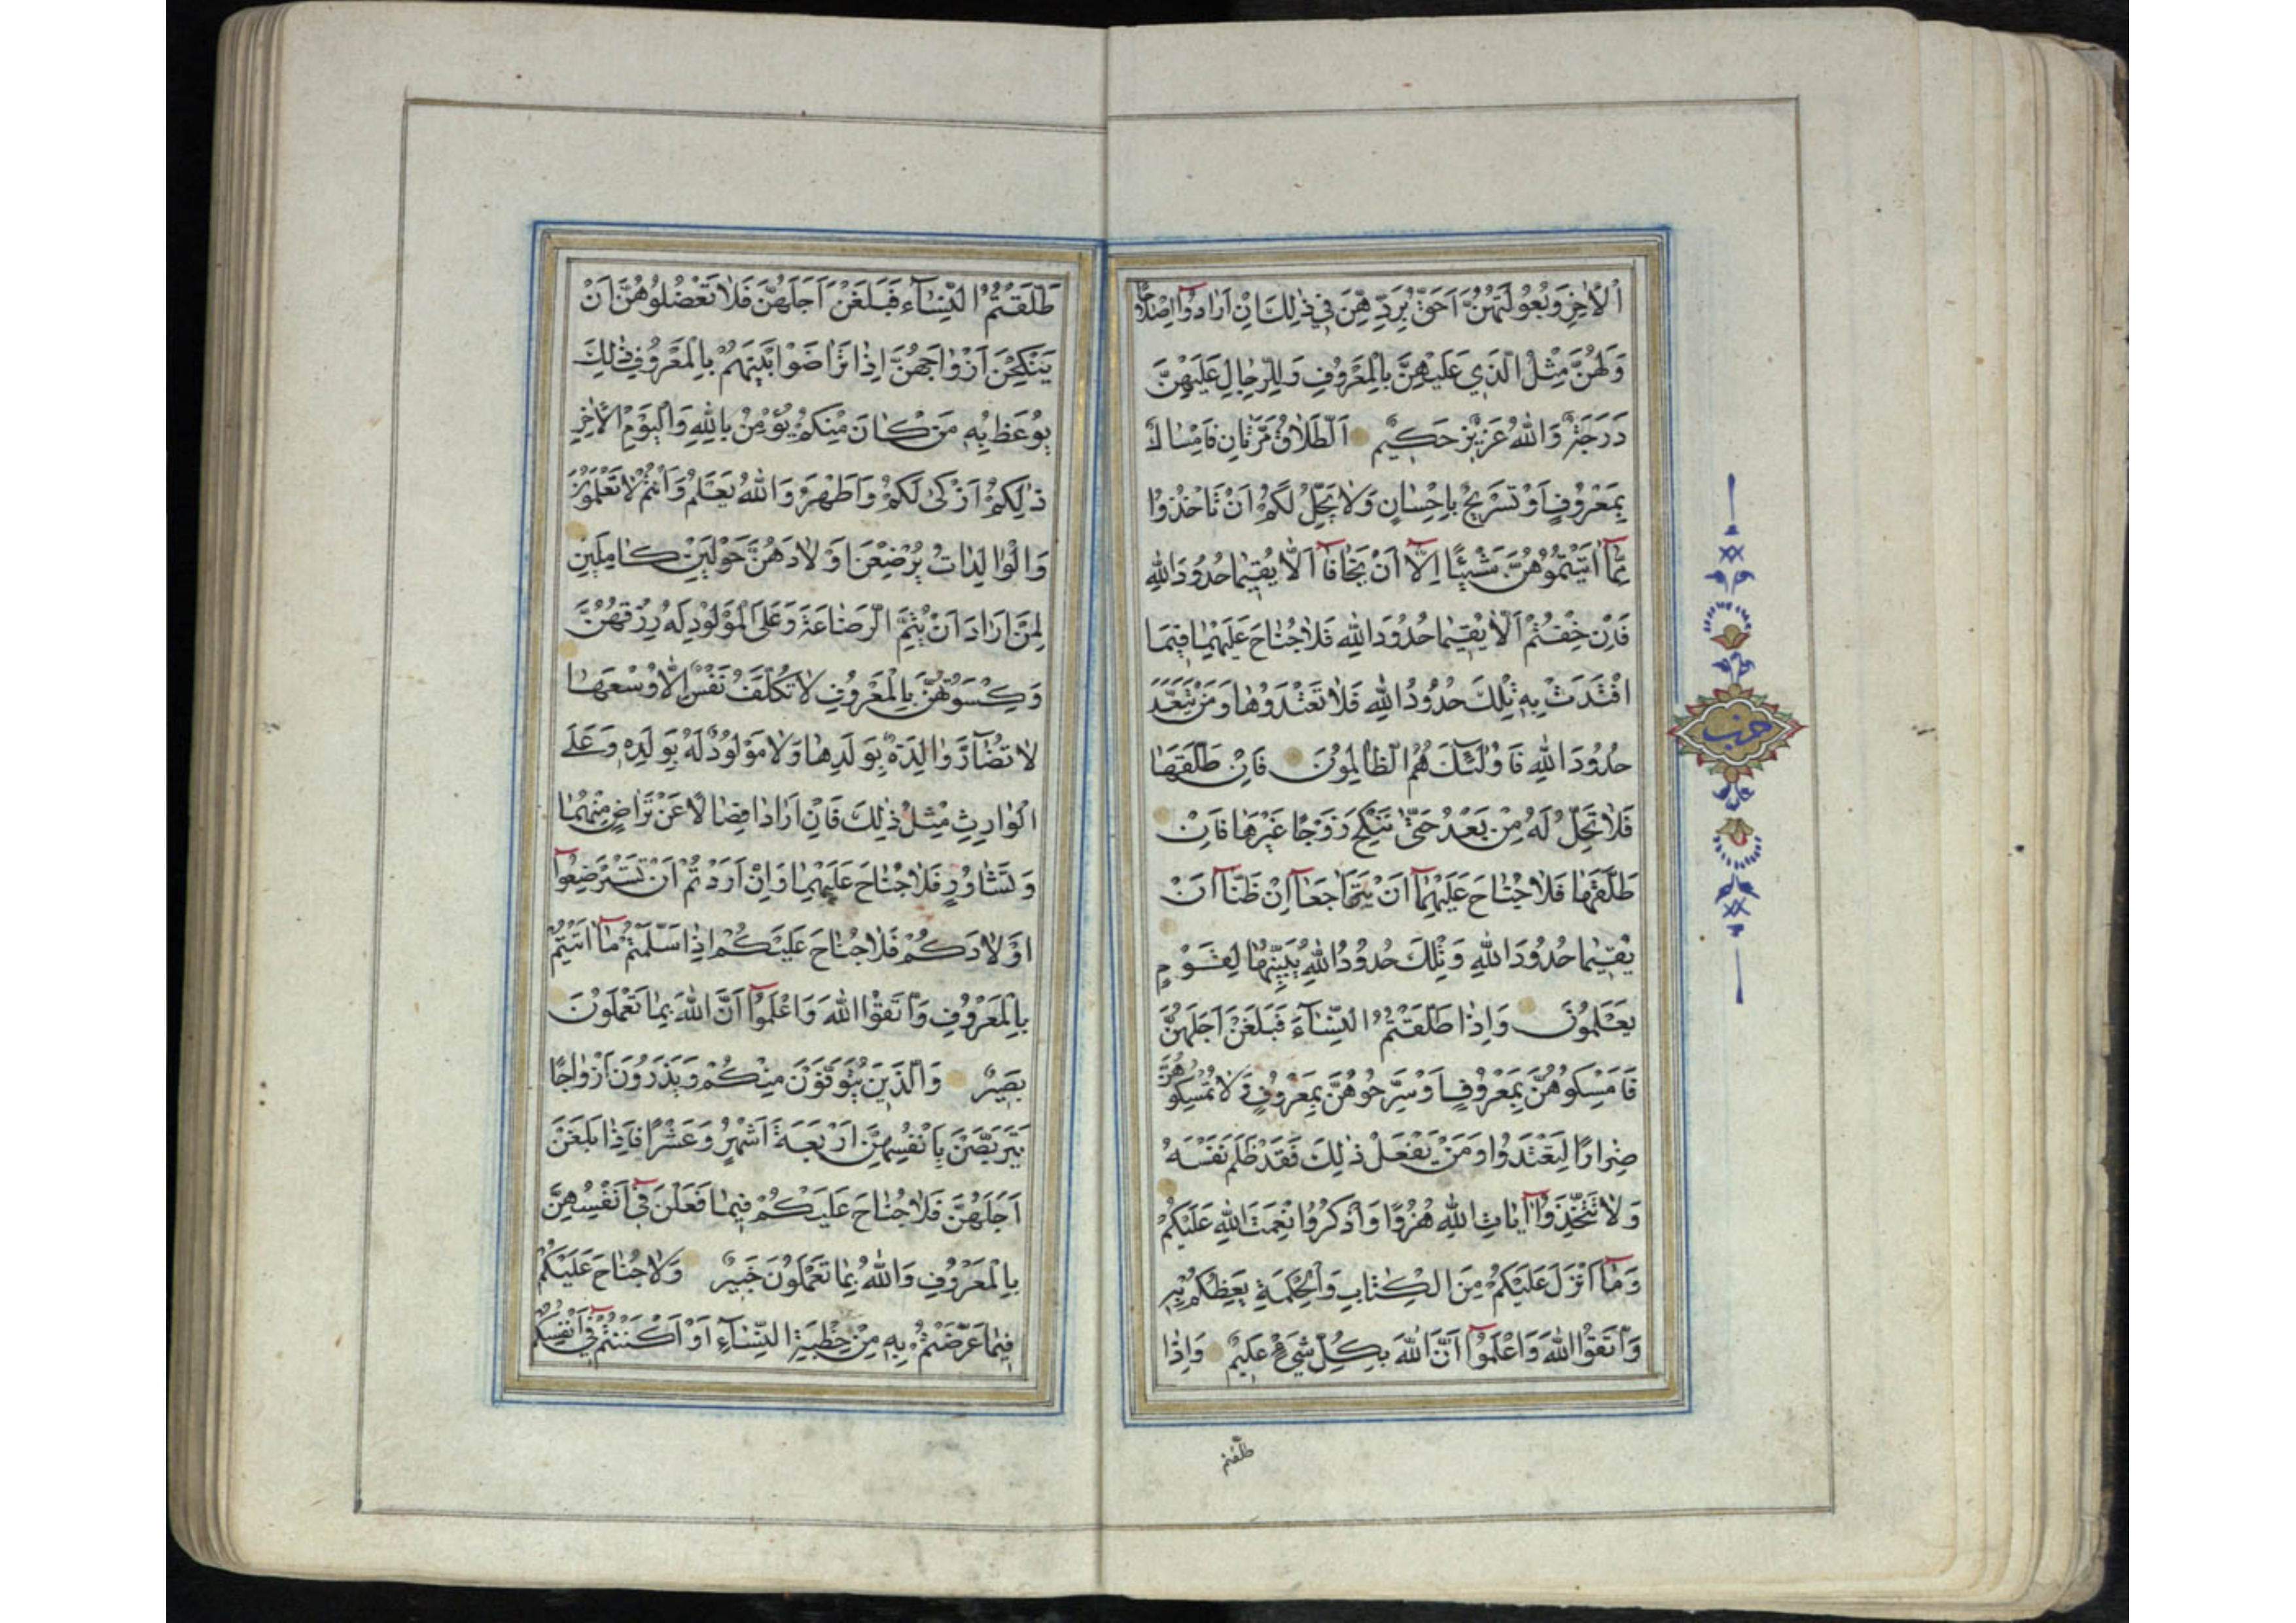 اَلْاٰخِرِ وَبُعُولَتُهُنَّ اَحَقُّ بِرَدِّهِنَّ فِي ذٰلِكَ اِنْ اَرَادُوٓا اِصْلَاحًا
وَلَهُنَّ مِثْلُ الَّذِي عَلَيْهِنَّ بِالْمَعْرُوفِ وَلِلرِّجَالِ عَلَيْهِنَّ
دَرَجَةٌ وَاللّٰهُ عَزِيزٌ حَكِيمٌ اَلطَّلَاقُ مَرَّتَانِ فَاِمْسَاكٌ
بِمَعْرُوفٍ اَوْ تَسْرِيحٌ بِاِحْسَانٍ وَلَا يَحِلُّ لَكُمْ اَنْ تَاْخُذُوا
مِمَّآ اٰتَيْتُمُوهُنَّ شَيْئًا اِلَّآ اَنْ يَخَافَآ اَلَّا يُقِيمَا حُدُودَ اللّٰهِ
فَاِنْ خِفْتُمْ اَلَّا يُقِيمَا حُدُودَ اللّٰهِ فَلَا جُنَاحَ عَلَيْهِمَا فِيمَا
افْتَدَتْ بِهِ تِلْكَ حُدُودُ اللّٰهِ فَلَا تَعْتَدُوهَا وَمَنْ يَتَعَدَّ
حُدُودَ اللّٰهِ فَاُولٰٓئِكَ هُمُ الظَّالِمُونَ فَاِنْ طَلَّقَهَا
فَلَا تَحِلُّ لَهُ مِنْ بَعْدُ حَتّٰى تَنْكِحَ زَوْجًا غَيْرَهَا فَاِنْ
طَلَّقَهَا فَلَا جُنَاحَ عَلَيْهِمَآ اَنْ يَتَرَاجَعَآ اِنْ ظَنَّآ اَنْ
يُقِيمَا حُدُودَ اللّٰهِ وَتِلْكَ حُدُودُ اللّٰهِ يُبَيِّنُهَا لِقَوْمٍ
يَعْلَمُونَ وَاِذَا طَلَّقْتُمُ النِّسَآءَ فَبَلَغْنَ اَجَلَهُنَّ
فَاَمْسِكُوهُنَّ بِمَعْرُوفٍ اَوْ سَرِّحُوهُنَّ بِمَعْرُوفٍ وَلَا تُمْسِكُوهُنَّ
ضِرَارًا لِتَعْتَدُوا وَمَنْ يَفْعَلْ ذٰلِكَ فَقَدْ ظَلَمَ نَفْسَهُ
وَلَا تَتَّخِذُوٓا اٰيَاتِ اللّٰهِ هُزُوًا وَاذْكُرُوا نِعْمَتَ اللّٰهِ عَلَيْكُمْ
وَمَآ اَنْزَلَ عَلَيْكُمْ مِنَ الْكِتَابِ وَالْحِكْمَةِ يَعِظُكُمْ بِهِ
وَاتَّقُوا اللّٰهَ وَاعْلَمُوٓا اَنَّ اللّٰهَ بِكُلِّ شَيْءٍ عَلِيمٌ وَاِذَا
طلقتم
حزب
طَلَّقْتُمُ النِّسَآءَ فَبَلَغْنَ اَجَلَهُنَّ فَلَا تَعْضُلُوهُنَّ اَنْ
يَنْكِحْنَ اَزْوَاجَهُنَّ اِذَا تَرَاضَوْا بَيْنَهُمْ بِالْمَعْرُوفِ ذٰلِكَ
يُوعَظُ بِهِ مَنْ كَانَ مِنْكُمْ يُؤْمِنُ بِاللّٰهِ وَالْيَوْمِ الْاٰخِرِ
ذٰلِكُمْ اَزْكٰى لَكُمْ وَاَطْهَرُ وَاللّٰهُ يَعْلَمُ وَاَنْتُمْ لَا تَعْلَمُونَ
وَالْوَالِدَاتُ يُرْضِعْنَ اَوْلَادَهُنَّ حَوْلَيْنِ كَامِلَيْنِ
لِمَنْ اَرَادَ اَنْ يُتِمَّ الرَّضَاعَةَ وَعَلَى الْمَوْلُودِ لَهُ رِزْقُهُنَّ
وَكِسْوَتُهُنَّ بِالْمَعْرُوفِ لَا تُكَلَّفُ نَفْسٌ اِلَّا وُسْعَهَا
لَا تُضَآرَّ وَالِدَةٌ بِوَلَدِهَا وَلَا مَوْلُودٌ لَهُ بِوَلَدِهِ وَعَلَى
الْوَارِثِ مِثْلُ ذٰلِكَ فَاِنْ اَرَادَا فِصَالًا عَنْ تَرَاضٍ مِنْهُمَا
وَتَشَاوُرٍ فَلَا جُنَاحَ عَلَيْهِمَا وَاِنْ اَرَدْتُمْ اَنْ تَسْتَرْضِعُوٓا
اَوْلَادَكُمْ فَلَا جُنَاحَ عَلَيْكُمْ اِذَا سَلَّمْتُمْ مَآ اٰتَيْتُمْ
بِالْمَعْرُوفِ وَاتَّقُوا اللّٰهَ وَاعْلَمُوٓا اَنَّ اللّٰهَ بِمَا تَعْمَلُونَ
بَصِيرٌ وَالَّذِينَ يُتَوَفَّوْنَ مِنْكُمْ وَيَذَرُونَ اَزْوَاجًا
يَتَرَبَّصْنَ بِاَنْفُسِهِنَّ اَرْبَعَةَ اَشْهُرٍ وَعَشْرًا فَاِذَا بَلَغْنَ
اَجَلَهُنَّ فَلَا جُنَاحَ عَلَيْكُمْ فِيمَا فَعَلْنَ فِيٓ اَنْفُسِهِنَّ
بِالْمَعْرُوفِ وَاللّٰهُ بِمَا تَعْمَلُونَ خَبِيرٌ وَلَا جُنَاحَ عَلَيْكُمْ
فِيمَا عَرَّضْتُمْ بِهِ مِنْ خِطْبَةِ النِّسَآءِ اَوْ اَكْنَنْتُمْ فِيٓ اَنْفُسِكُمْ